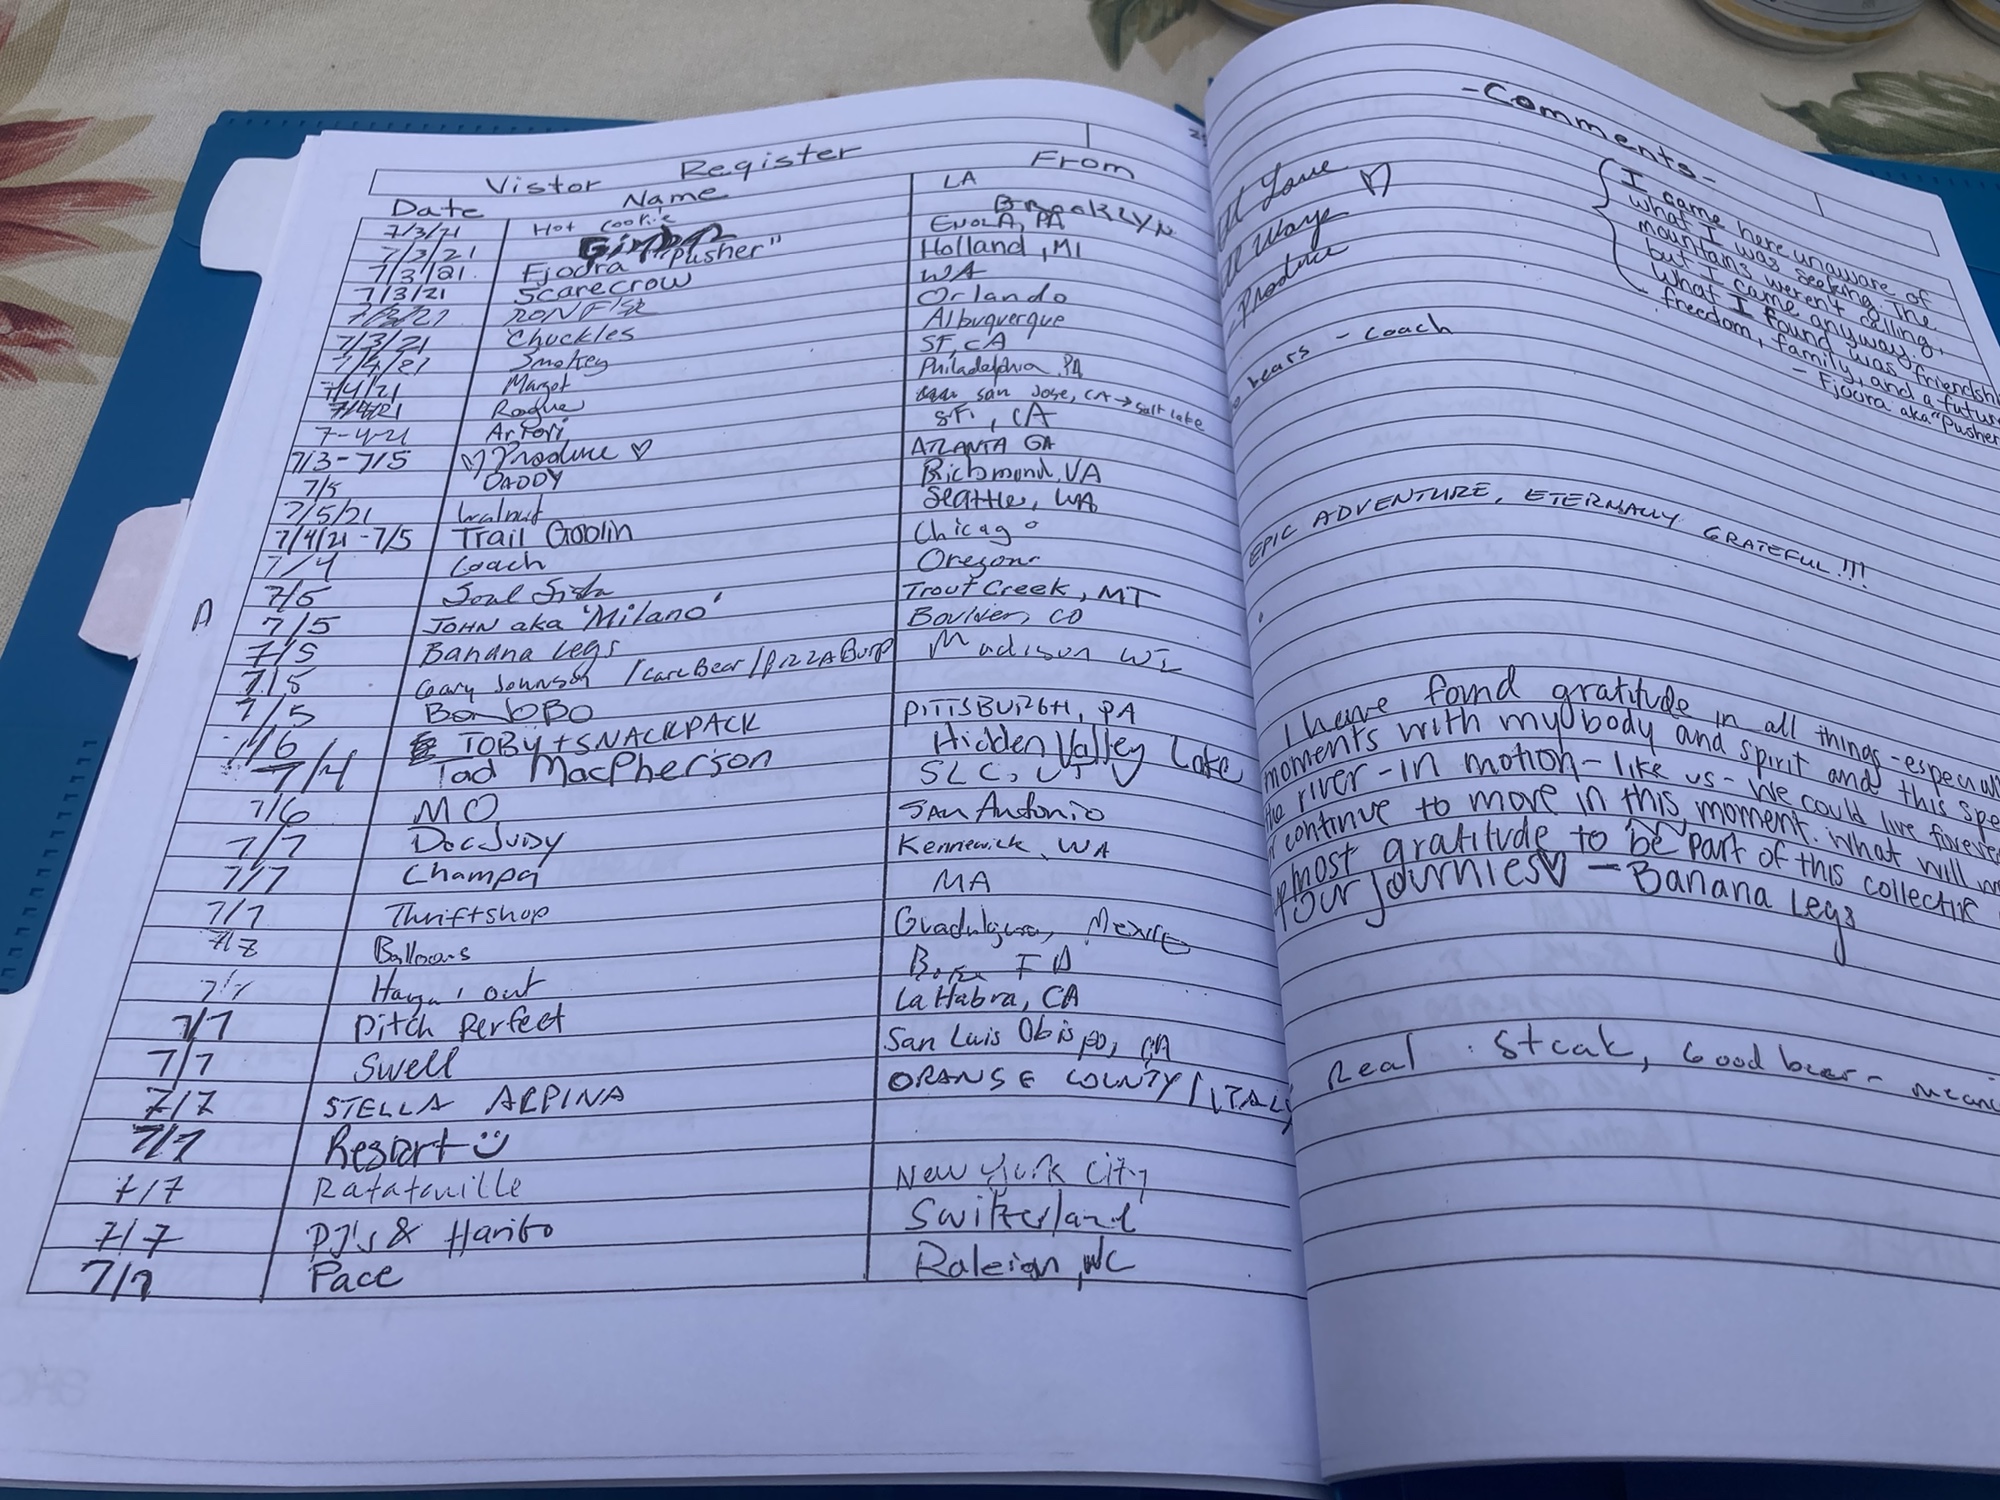 Vistor Register
Date Name From
7/3/21 Hot cookie LA
7/3/21 Brooklyn
7/3/21 Fjodra "Pusher" ENOLA, PA
7/3/21 Scarecrow Holland, MI
WA
7/3/21 Chuckles Orlando
7/4/21 Smokey Albuquerque
7/4/21 Margot SF, CA
7/4/21 Philadelphia PA
7-4-21 san Jose, CA → Salt Lake
7/3-7/5 ♡ Produce ♡ SF, CA
7/5 DADDY ATLANTA GA
7/5/21 Walnut Richmond, VA
7/4/21-7/5 Trail Goblin Seattle, WA
7/4 Coach Chicago
7/5 Soul Sista Oregon
7/5 JOHN aka 'Milano' Trout Creek, MT
7/5 Banana Legs Boulder, CO
7/5 Gary Johnson / Care Bear / PIZZA Burp Madison WI
7/5 BonoBO PITTSBURGH, PA
7/6 TOBY + SNACKPACK Hidden Valley Lake
7/4 Tad MacPherson SLC, UT
7/6 MO SAN Antonio
7/7 Doc Judy Kennewick, WA
7/7 Champa MA
7/7 Thriftshop Guadalajara, Mexico
7/7 Balloons
out La Habra, CA
7/7 Pitch Perfect San Luis Obispo, CA
7/7 Swell ORANGE COUNTY / ITALY
7/7 STELLA ALPINA
7/7 Restart
7/7 Ratatouille New York City
7/7 PJ's & Haribo Switzerland
7/7 Pace Raleigh, NC
-Comments-
Love
♡
Ways
Produce
I came here unaware of
what I was seeking. The
mountains weren't calling,
but I came anyway.
What I found was friendsh
freedom, family, and a futur
- Fjodra aka "Pusher
bears - Coach
EPIC ADVENTURE, ETERNALLY GRATEFUL!!!
I have found gratitude in all things - especiall
moments with my body and spirit and this spe
the river - in motion - like us - We could live foreve
continue to move in this moment. What will
most gratitude to be part of this collective
Our journies ♡ - Banana Legs
Real Steak, Good beer -